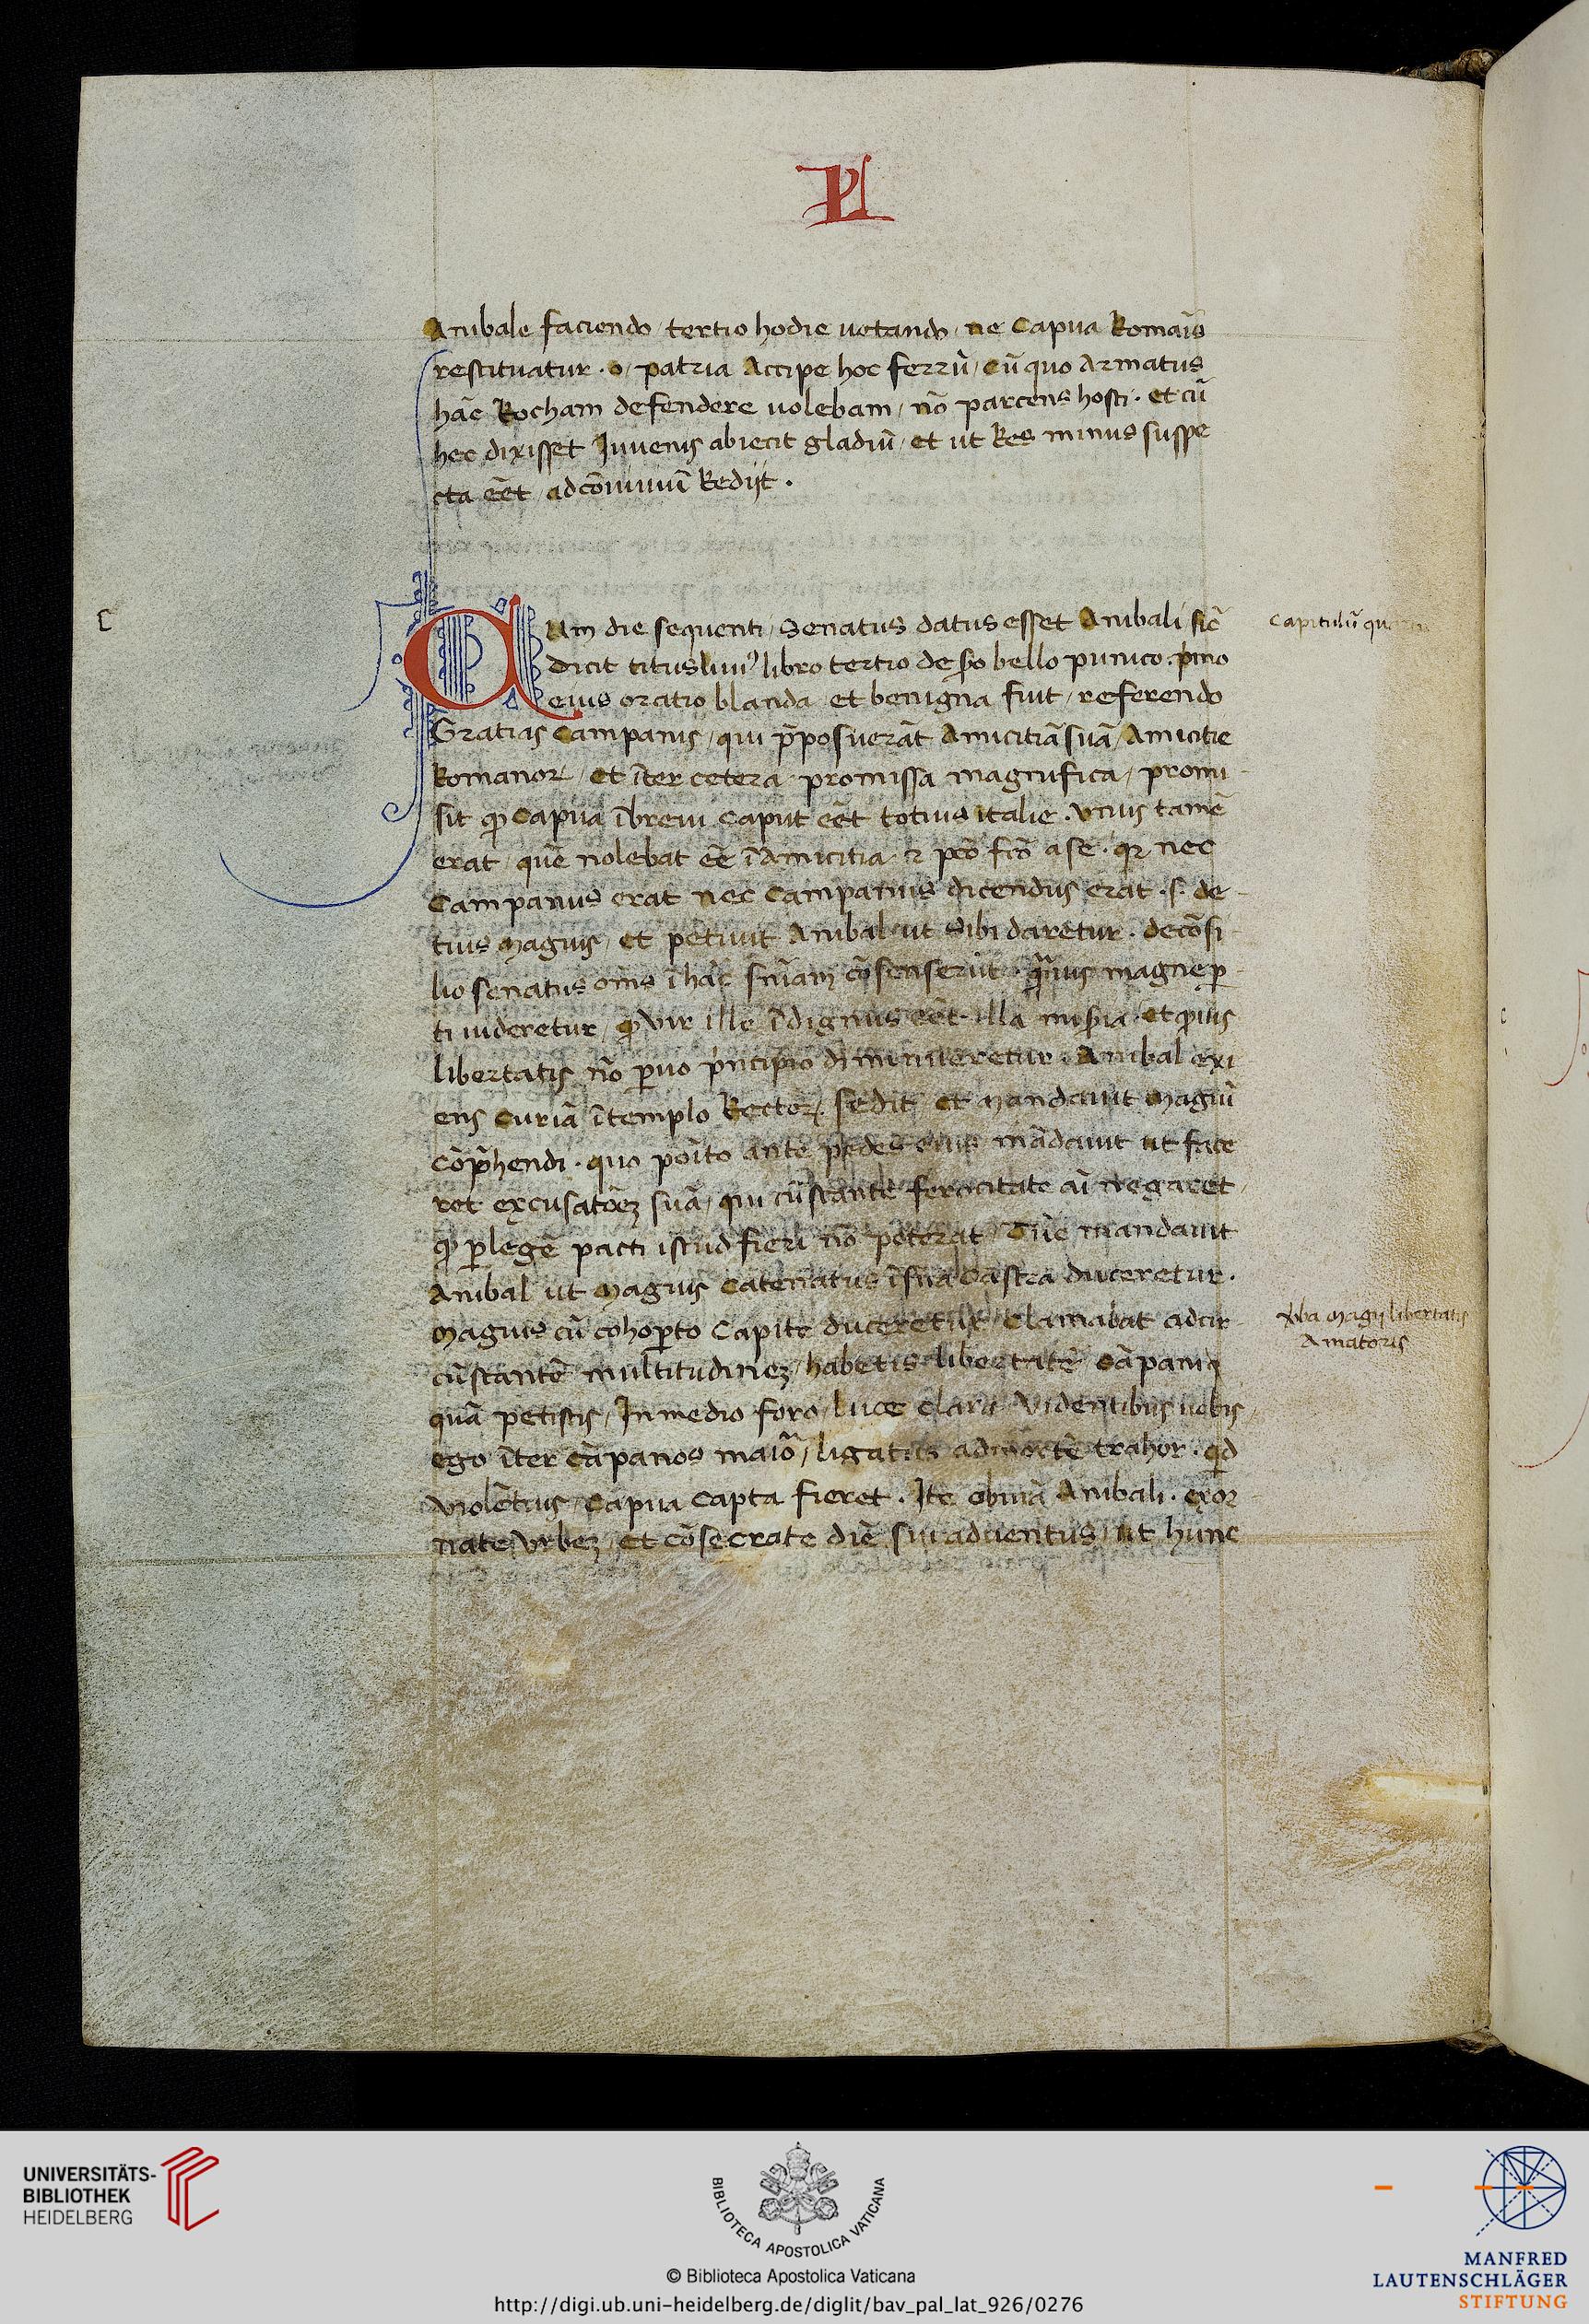 PL
Anibale faciendo / tertio hodie uetando / ne Capua Romaīs
restituatur · o / patria Accipe hoc ferrū / cū quo Armatus
hāc Rocham defendere uolebam / nō parcens hosti · et cū
hec dixisset Iuuenis abiecit gladiū / et ut Res minus suspe
cta eēt / ad cōuiuiū Redijt ·
CUm die sequenti / Senatus datus esset Anibali sic̄
dicit titus liui⁹ libro tertio de sᷓo bello punico · pͥmo
eius oratio blanda / et benigna fuit / referendo
Gratias Campanis / qui p̄posuerāt Amicitiā suā / Amicitie
Romanoꝝ / et īter cetera promissa magnifica / promi
sit ꝙ Capua ībreui caput eēt totius italie · Vnus tamē
erat / quē nolebat eē ī Amicitia · ꝛ pcō fcō a se · qꝛ nec
Campanus erat nec Campanus dicendus erat · s · de
tius Magius / et petiuit Anibal ut Sibi daretur · de cōsi
lio senatus om̄s ī hāc sn̄iam cōsenserūt · quāuis magne ꝑ
ti uideretur / ꝙ vir ille īdignus eēt illa misͥia · et ꝙ ius
libertatis nō ꝑuo pͥncipio diminueretur · Anibal exi
ens Curiā ī templo Rectoꝝ · sedit / et Mandauit Magiū
cōp̄hendi · quo poīto ante pedes eius mādauit ut face
ret excusatōeꝫ suā / qui cū stante ferocitate aī negaret
ꝙ ꝑ legē pacti istud fieri nō poterat Tūc mandauit
Anibal ut Magius Catenatus ī sua Castra duceretur ·
Magius cū cohoꝑto Capite duceretur / Clamabat ad cir
cūstantē multitudineꝫ / habetis libertatē Cāpani
quā petistis / In medio foro / luce clara Videntibus uobis /
ego īter Cāpanos maioͬ / ligatus ad mortē trahor · qͥd
violētius / Capua capta fieret · Ite obuiā Anibali · exor
nate vrbeꝫ / et cōsecrate diē sui aduentus / ut hunc
Capitulū
v̄ba Magij libertatis
Amatoris
UNIVERSITÄTS-
BIBLIOTHEK
HEIDELBERG
BIBLIOTECA APOSTOLICA VATICANA
© Biblioteca Apostolica Vaticana
http://digi.ub.uni-heidelberg.de/diglit/bav_pal_lat_926/0276
MANFRED
LAUTENSCHLÄGER
STIFTUNG